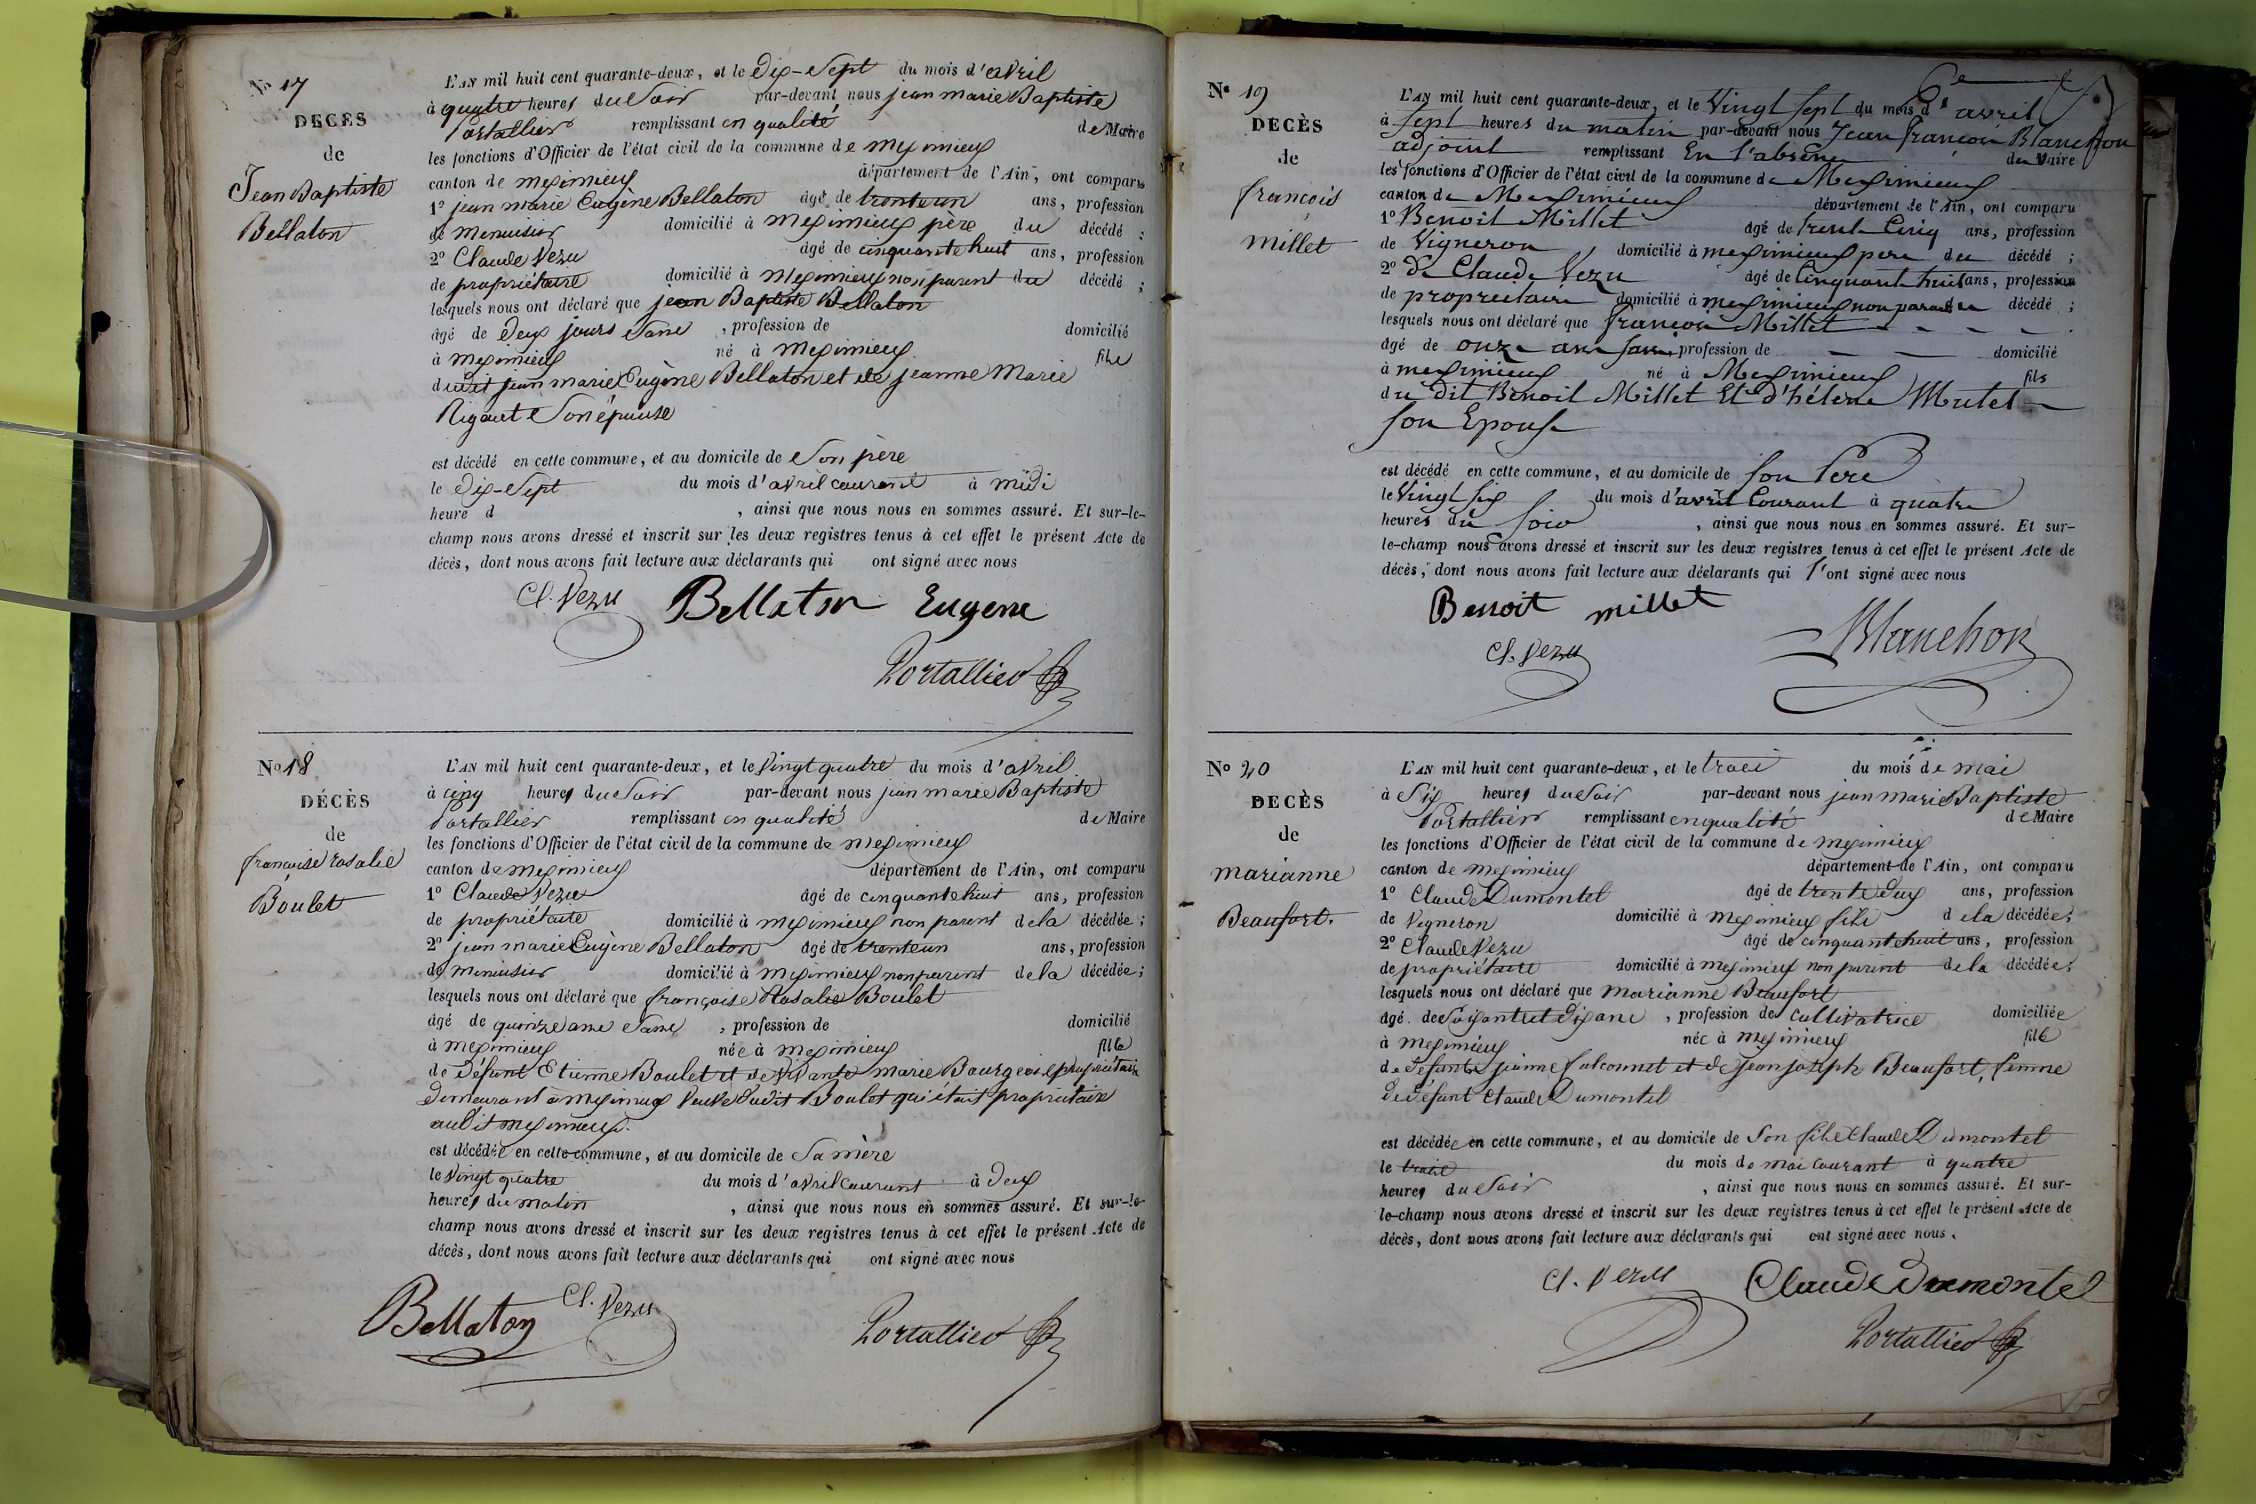 N° 17
DECES
de
Jean Baptiste
Bellaton
L'AN mil huit cent quarante-deux, et le dix-sept du mois d'avril
à quatre heures du soir par-devant nous jean marie Baptiste
Portallier remplissant en qualité de Maire
les fonctions d'Officier de l'état civil de la commune de meximieux
canton de meximieux département de l'Ain, ont comparu
1° jean marie Eugène Bellaton âgé de trente un ans, profession
de menuisier domicilié à meximieux père du décédé ;
2° Claude Vezu âgé de cinquante huit ans, profession
de propriétaire domicilié à meximieux non parent du décédé ;
lesquels nous ont déclaré que jean Baptiste Bellaton
âgé de deux jours sans , profession de domicilié
à meximieux né à meximieux fils
dudit jean marie Eugène Bellaton et de jeanne Marie
Rigaut son épouse
est décédé en cette commune, et au domicile de son père
le dix-sept du mois d'avril courant à midi
heure d , ainsi que nous nous en sommes assuré. Et sur-le-
champ nous avons dressé et inscrit sur les deux registres tenus à cet effet le présent Acte de
décès, dont nous avons fait lecture aux déclarants qui ont signé avec nous
Cl. Vezu Bellaton Eugene
Portallier
N° 18
DÉCÈS
de
françoise rosalie
Boulet
L'AN mil huit cent quarante-deux, et le vingt quatre du mois d'avril
à cinq heures du soir par-devant nous jean marie Baptiste
Portallier remplissant en qualité de Maire
les fonctions d'Officier de l'état civil de la commune de meximieux
canton de meximieux département de l'Ain, ont comparu
1° Claude Vezu âgé de cinquante huit ans, profession
de propriétaire domicilié à meximieux non parent de la décédée ;
2° jean marie Eugène Bellaton âgé de trente un ans, profession
de menuisier domicilié à meximieux non parent de la décédée ;
lesquels nous ont déclaré que françoise Rosalie Boulet
âgé de quinze ans sans , profession de domicilié
à meximieux née à meximieux fille
de défunt Etienne Boulet et de vivante marie Bourgeois propriétaire
demeurant à meximieux veuve dudit Boulet qui était propriétaire
audit meximieux.
est décédée en cette commune, et au domicile de sa mère
le vingt quatre du mois d'avril courant à deux
heures du matin , ainsi que nous nous en sommes assuré. Et sur-le-
champ nous avons dressé et inscrit sur les deux registres tenus à cet effet le présent Acte de
décès, dont nous avons fait lecture aux déclarants qui ont signé avec nous
Bellaton Cl. Vezu
Portallier
N° 19
DECÈS
de
françois
millet
L'AN mil huit cent quarante-deux, et le vingt sept du mois d' avril
à sept heures du matin par-devant nous Jean françois Blanchon
adjoint remplissant en l'absence du Maire
les fonctions d'Officier de l'état civil de la commune de Meximieux
canton de Meximieux département de l'Ain, ont comparu
1° Benoit Millet âgé de trente cinq ans, profession
de Vigneron , domicilié à meximieux pere du décédé ;
2° Claude Vezu âgé de cinquant huit ans, profession
de propriétaire domicilié à meximieux non parent du décédé ;
lesquels nous ont déclaré que francois Millet
âgé de onze ans sans profession de domicilié
à meximieux né à Meximieux fils
du dit Benoit Millet Et d'hélène Mutel
son Epouse
est décédé en cette commune, et au domicile de son Pere
le vingt six du mois d'avril Courant à quatre
heures du soir , ainsi que nous nous en sommes assuré. Et sur-
le-champ nous avons dressé et inscrit sur les deux registres tenus à cet effet le présent Acte de
décès, dont nous avons fait lecture aux déclarants qui l'ont signé avec nous
Benoit millet
Cl. Vezu Blanchon
N° 20
DECÈS
de
marianne
Beaufort.
L'AN mil huit cent quarante-deux, et le trois du mois de mai
à six heures du soir par-devant nous jean marie Baptiste
Portallier remplissant en qualité de Maire
les fonctions d'Officier de l'état civil de la commune de meximieux
canton de meximieux département de l'Ain, ont comparu
1° Claude Dumontel âgé de trente deux ans, profession
de vigneron domicilié à meximieux fils de la décédée;
2° Claude Vezu âgé de cinquante huit ans, profession
de propriétaire domicilié à meximieux non parent de la décédée;
lesquels nous ont déclaré que marianne Beaufort
âgé de soixante et dix ans , profession de cultivatrice domiciliée
à meximieux née à meximieux fille
de défunts jeanne falconnet et de jean joseph Beaufort, femme
de défunt Claude Dumontel
est décédée en cette commune, et au domicile de son fils Claude Dumontel
le trois du mois de mai courant à quatre
heures du soir , ainsi que nous nous en sommes assuré. Et sur-
le-champ nous avons dressé et inscrit sur les deux registres tenus à cet effet le présent Acte de
décès, dont nous avons fait lecture aux déclarants qui ont signé avec nous.
Cl. Vezu Claude Dumontel
Portallier